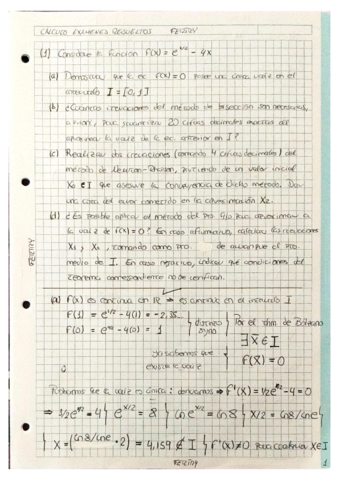 CÁLCULO EXÁMENES RESUELTOS FEETINY
(1) Considere la función f(x) = e^{x/2} - 4x
(a) Demostrar que la ec. f(x)=0 posee una única raíz en el
intervalo I = [0,1]
(b) ¿Cuántas iteraciones del método de bisección son necesarias,
a priori, para garantizar 20 cifras decimales exactas al
aproximar la raíz de la ec. anterior en I?
(c) Realizar dos iteraciones (tomando 4 cifras decimales) del
método de Newton-Raphson, partiendo de un valor inicial
X₀ ∈ I que asegure la convergencia de dicho método. Dar
una cota del error cometido en la aproximación X₂.
(d) ¿Es posible aplicar el método del pto fijo para aproximar a
la raíz de f(x)=0? En caso afirmativo, calcular las iteraciones
X₁ y X₂, tomando como pto. de arranque el pto.
medio de I. En caso negativo, indicar que condiciones del
teorema correspondiente no se verifican.
(a) f(x) es continua en ℝ ⇒ es continua en el intervalo I
f(1) = e^{1/2} - 4(1) = -2,35...
f(0) = e^{0/2} - 4(0) = 1
distinto signo
Por el thm de Bolzano
∃ x̄ ∈ I
f(x̄) = 0
ya sabemos que
existe la raíz
la raíz es única: derivamos ⇒ f'(x) = 1/2 e^{x/2} - 4 = 0
⇒ 1/2 e^{x/2} = 4 } e^{x/2} = 8 } ln e^{x/2} = ln 8 } x/2 = ln8/lne }
} x = (ln8/lne · 2) = 4,159 ∉ I } f'(x) ≠ 0 para cualquier x ∈ I
FEETINY
FEETINY
1